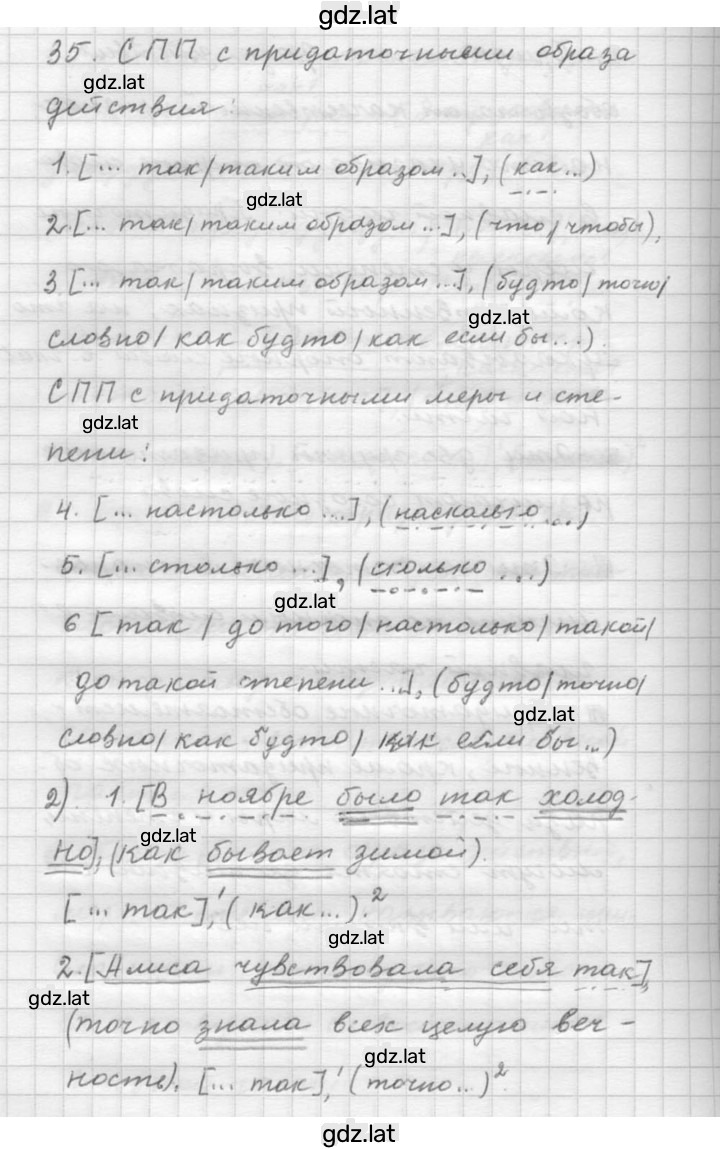 gdz.lat
35. СПП с придаточными образа
gdz.lat
действия:
1. [... так/таким образом ..], (как...)
gdz.lat
2. [... так/ таким образом ...], (что/ чтобы),
3 [... так/ таким образом ...], (будто/ точно/
gdz.lat
словно/ как будто/ как если бы...).
СПП с придаточными меры и сте-
gdz.lat
пени:
4. [... настолько ...], (насколько ...)
5. [... столько ...], (сколько ...)
gdz.lat
6 [ так / до того/ настолько/ такой/
до такой степени ..], (будто/ точно/
gdz.lat
словно/ как будто/ как если бы ..)
2). 1. [В ноябре было так холод-
gdz.lat
но], (как бывает зимой).
[... так],¹ (как...).²
gdz.lat
2. [Алиса чувствовала себя так],
gdz.lat
(точно знала всех целую веч-
gdz.lat
ность). [... так],¹ (точно...)².
gdz.lat